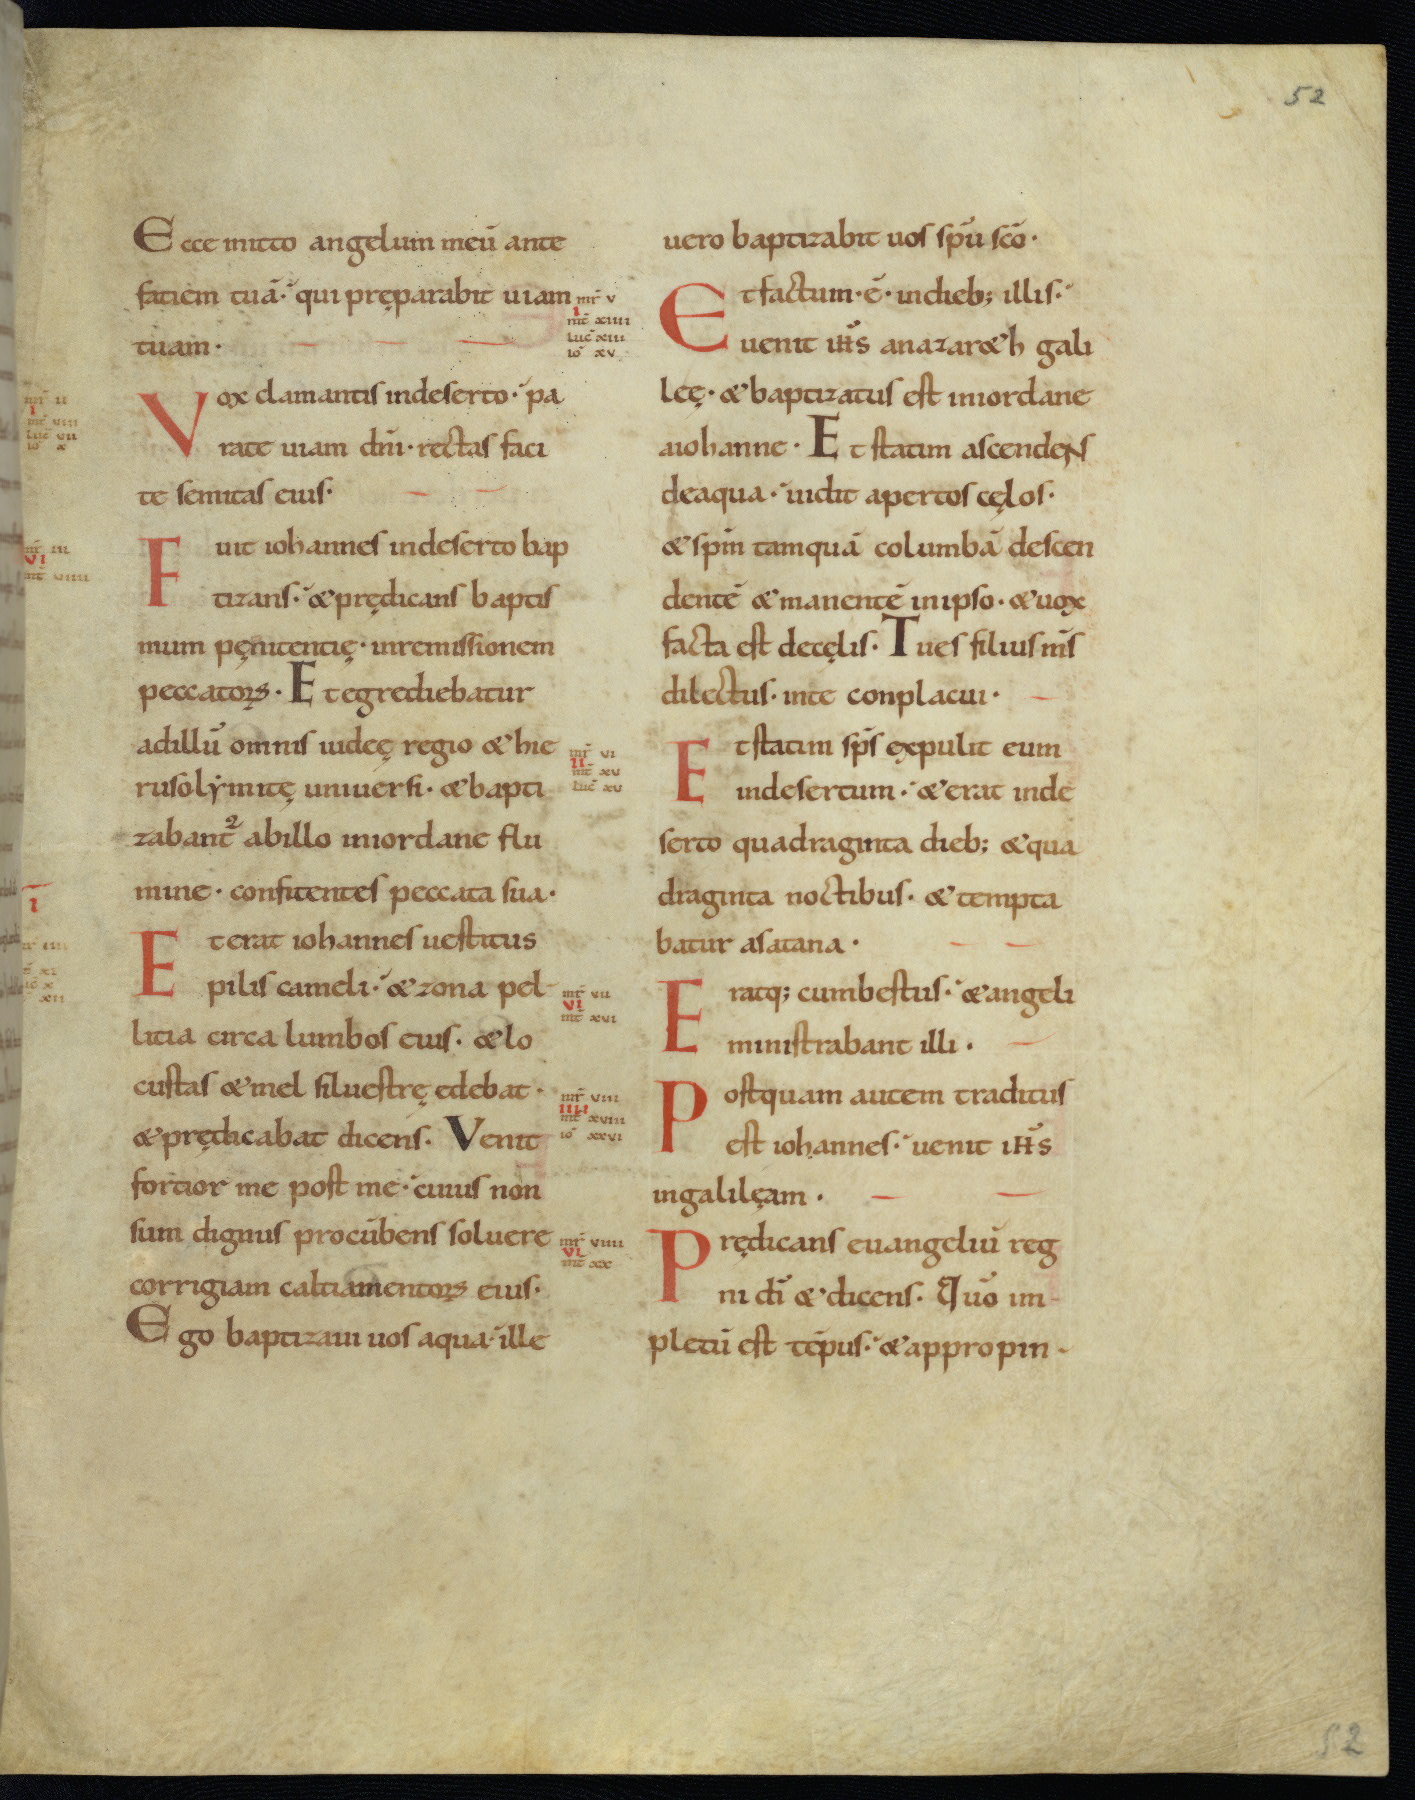 52
Ecce mitto angelum meū ante
faciem tuā· qui pręparabit uiam
tuam·
Vox clamantis indeserto· pa
rate uiam dn̄i· rectas faci
te semitas eius·
Fuit iohannes indeserto bap
tizans· & prędicans baptis
mum pęnitentię· inremissionem
peccatorꝝ· Et egrediebatur
adillū omnis iudeę regio & hie
rusolẏmitę uniuersi· & bapti
zabant᷑ abillo iniordane flu
mine· confitentes peccata sua·
Et erat iohannes uestitus
pilis cameli· & zona pel
licia circa lumbos eius· & lo
custas & mel siluestrę edebat·
& prędicabat dicens· Venit
fortior me post me· cuius non
sum dignus procūbens soluere
corrigiam caltiamentorꝝ eius·
Ego baptizaui uos aqua· ille
mr̄ ii
i
mt̄ viii
luc̄ vii
io̅ x
mr̄ iii
vi
mt̄ viiii
i
mr̄ v
i
mt̄ xiiii
luc̄ xiii
io̅ xv
mr̄ vi
ii
mt̄ xv
luc̄ xv
mr̄ vii
vi
mt̄ xvi
mr̄ viii
iiii
mt̄ xviii
io̅ xxvi
mr̄ viiii
vi
mt̄ xx
uero baptizabit uos sp̄u sc̄o·
Et factum· ē· indieb; illis·
uenit ihs̄ anazar&h gali
leę· & baptizatus est iniordane
aiohanne· Et statim ascendeNs
deaqua· uidit apertos cęlos·
& sp̄m tamquā columbā descen
dentē & manentē inipso· & uox
facta est decęlis· Tu es filius ms̄
dilectus· inte conplacui·
Et statim sp̄s expulit eum
indesertum· & erat inde
serto quadraginta dieb; & qua
draginta noctibus· & tempta
batur asatana·
Eratq; cumbestus· & angeli
ministrabant illi·
Postquam autem traditus
est iohannes· uenit ihs̄
ingalilęam·
Prędicans euangeliū reg
ni dī & dicens· Quō im
pletū est tēpus· & appropin
52